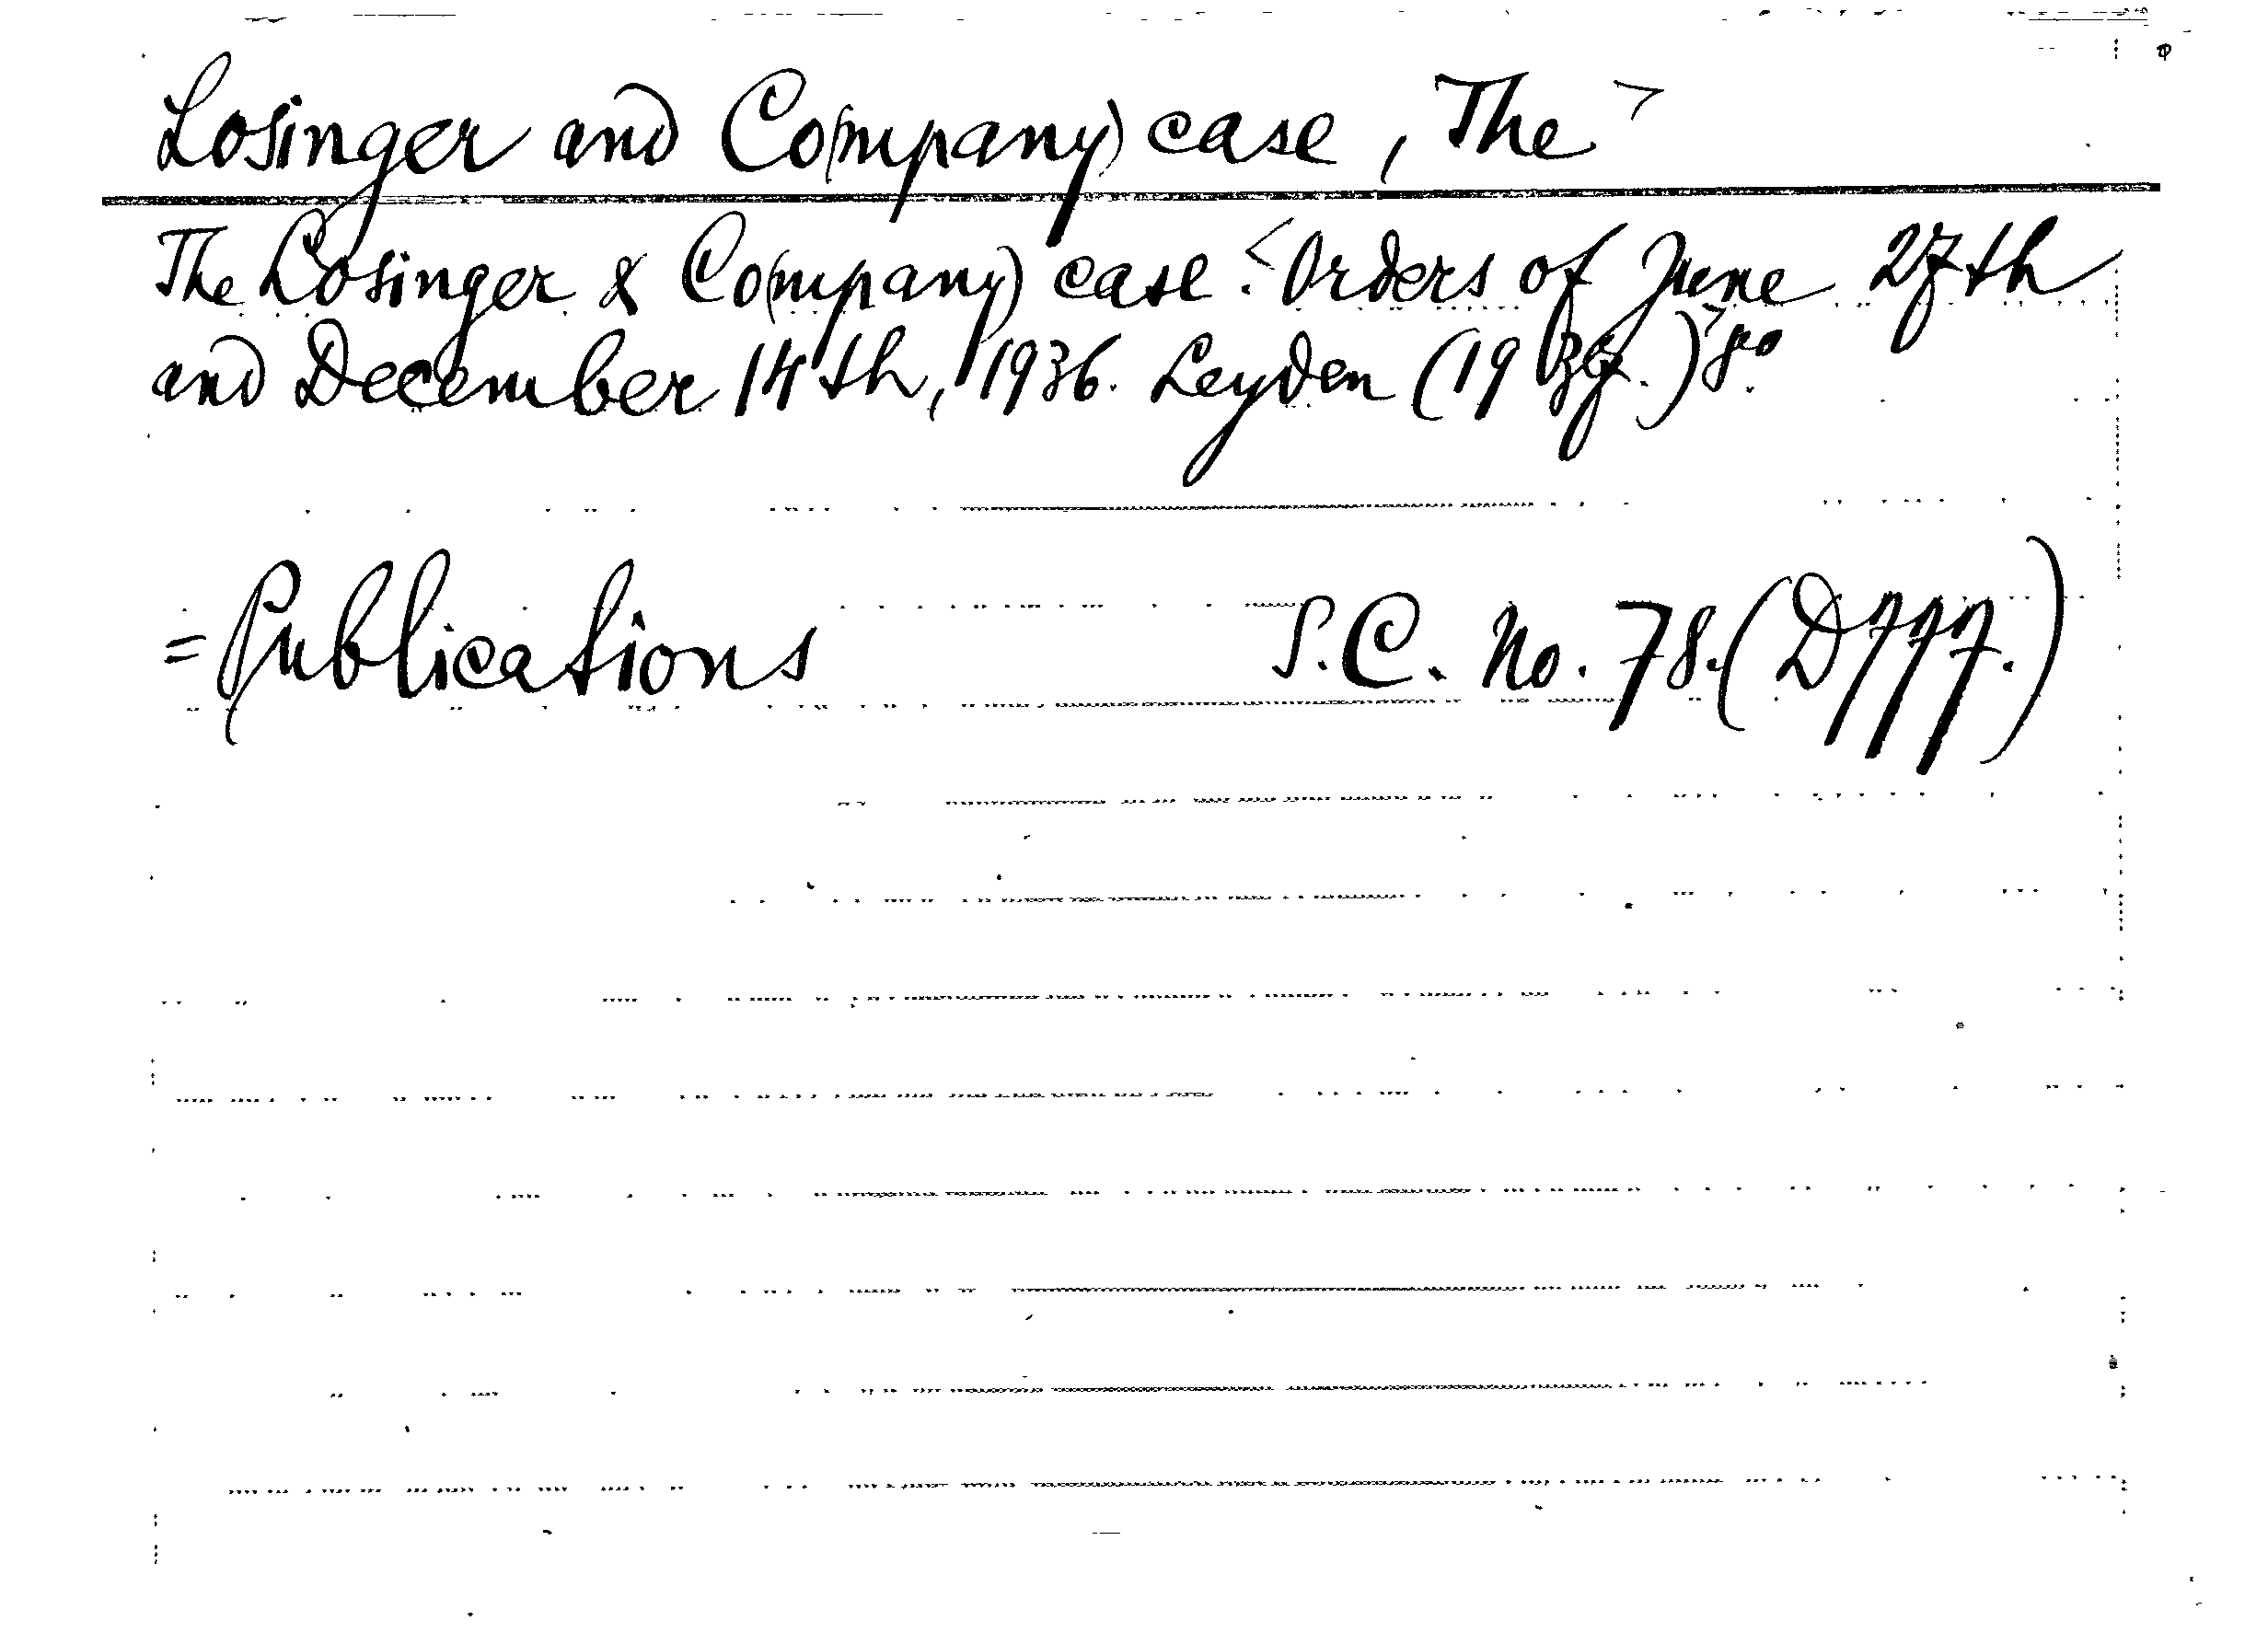 Losinger and Co(mpany) case, The >
The Losinger & Co(mpany) case. <Orders of June 27th
and December 14th, 1936.> Leyden (1937.) 8º.
= Publications S.C. No. 78. (D777.)